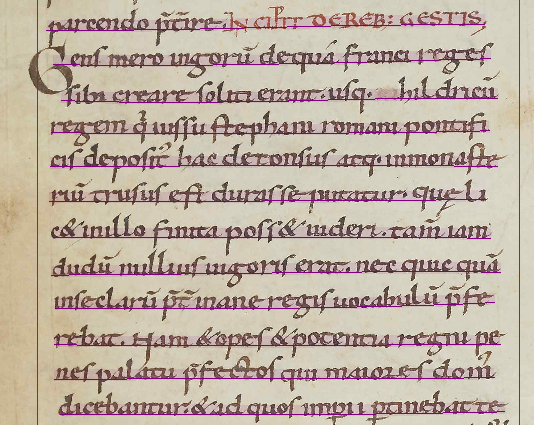 parcendo p̄t̄ire. INCIPIT DE REB: GESTIS,
Gens mero ingorū de qua franci reges
sibi creare soliti erant. usq. hildricū
regem q̇ iussu stephani romani pontifi
cis deposit᷒ hac detonsus atq. inmonaste
riū trusus est durasse putatur. quę li
c& inillo finita poss& uideri. tam̄ iam
dudū nullius uigoris erat. nec quic quā
inse clarū p̄t̄ inane regis uocabulū p̄fe
rebat. Nam & opes & potentia regni pe
nes palatii p̄fectos qui maiores dom᷒
dicebantur. & ad quos imp̄ii ꝑtinebat te